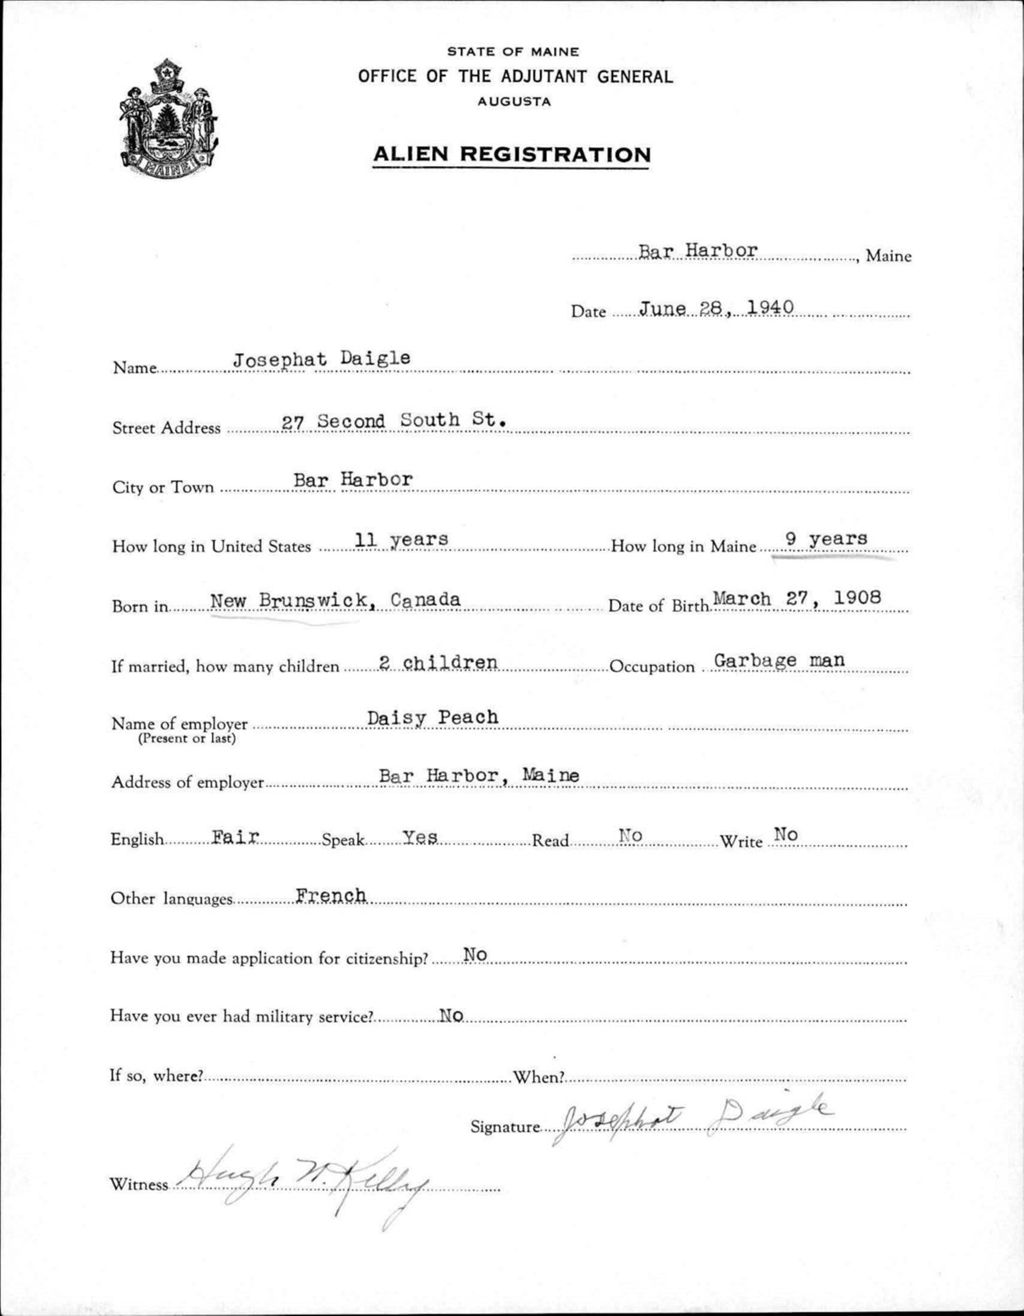 STATE OF MAINE
OFFICE OF THE ADJUTANT GENERAL
AUGUSTA
ALIEN REGISTRATION
MAINE
Bar Harbor, Maine
Date June 28, 1940
Name Josephat Daigle
Street Address 27 Second South St.
City or Town Bar Harbor
How long in United States 11 years How long in Maine 9 years
Born in New Brunswick, Canada Date of Birth March 27, 1908
If married, how many children 2 children Occupation Garbage man
Name of employer Daisy Peach
(Present or last)
Address of employer Bar Harbor, Maine
English Fair Speak Yes Read No Write No
Other languages French
Have you made application for citizenship? No
Have you ever had military service? No
If so, where? When?
Signature Josephat Daigle
Witness Hugh W. Kelly